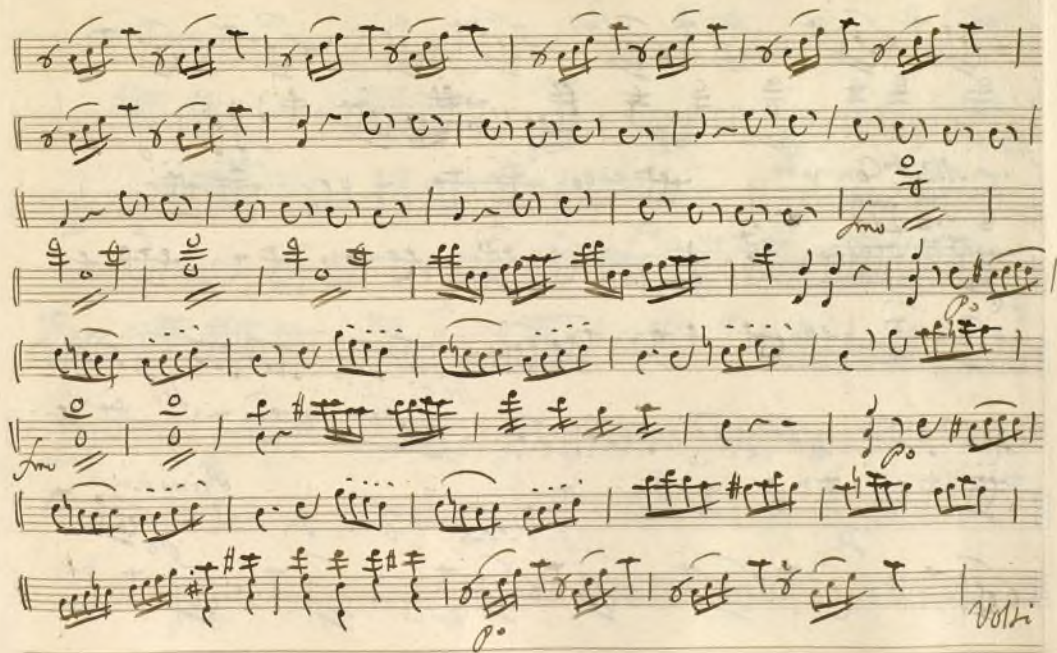 fmo
po
fmo
po
po
Volti